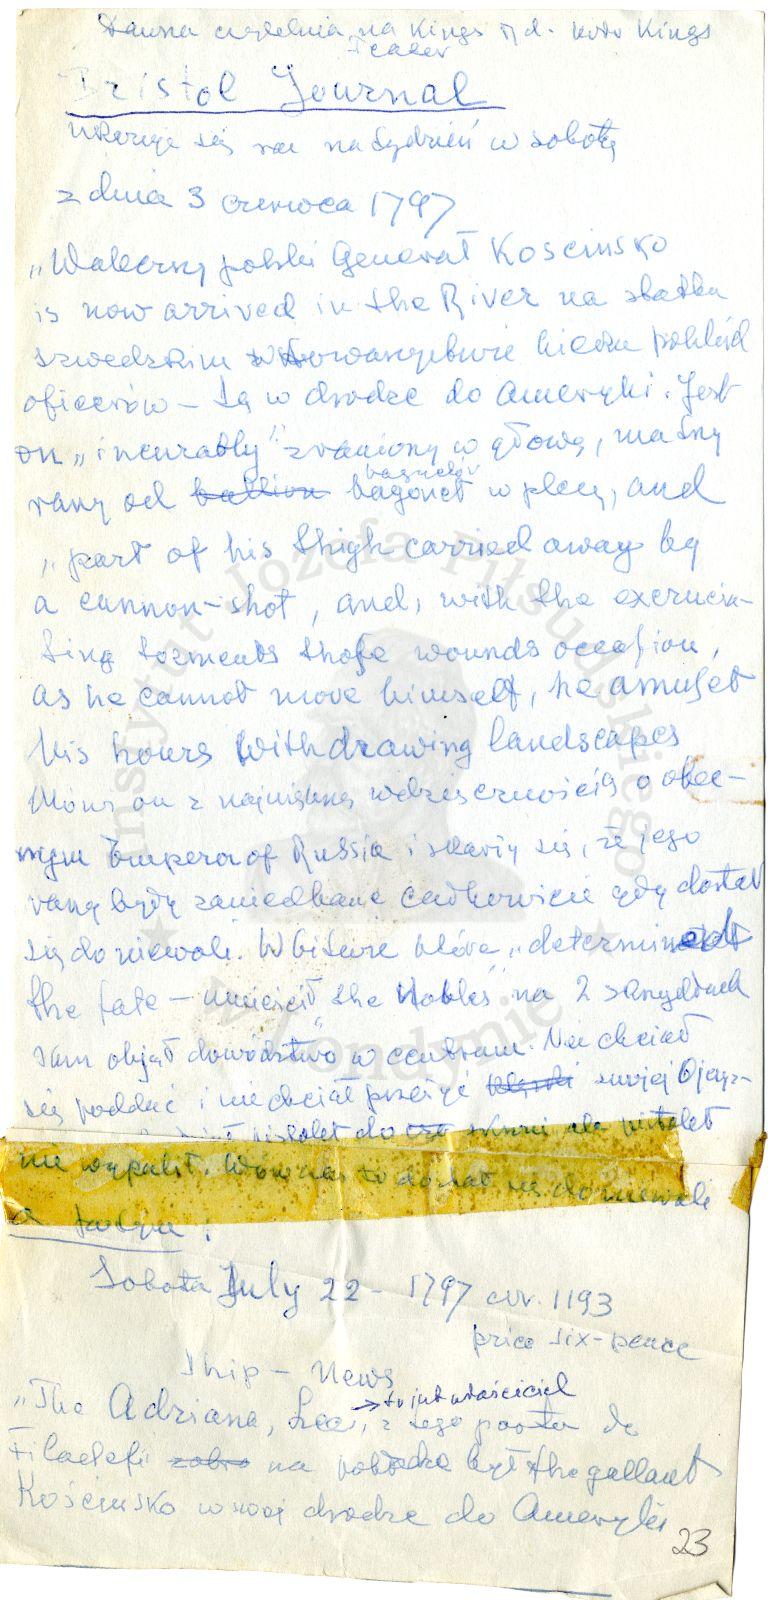 Dawna czytelnia na Kings rd. koło Kings
Teater
Bristol Journal
ukazuje się raz na tydzień w sobotę
z dnia 3 czerwca 1797
„Waleczny polski Generał Kosciusko
is now arrived in the River na statku
szwedzkim w towarzystwie kilku polskich
oficerów – są w drodze do Ameryki. Jest
on „incurably" zraniony w głowę, ma trzy
rany od ballion bagonet bagnetów w plecy, and
„part of his thigh carried away by
a cannon-shot, and, with the excrucia-
ting torments those wounds occasion,
as he cannot move himself, he amuset
his hours with drawing landscapes
Mówi on z największą wdzięcznością o obec-
nym Emperor of Russia i skarży się, że jego
rany były zaniedbane całkowicie gdy dostał
się do niewoli. W bitwie która „determined
the fate – umieścił the Nobles" na 2 skrzydłach
sam objął dowództwo w centrum. Nie chciał
się poddać i nie chciał przeżyć klęski swojej Ojczy-
pistolet do skroni ale pistolet
nie wypalił. Wówczas to dostał się do niewoli
Sobota July 22 – 1797 cur. 1193
price six-pence
Ship – News
→ to jest właściciel
„The Adriana, Lee, z tego portu do
Filadelfi zabro na pokładzie był the gallant
Kościusko w swej drodze do Ameryki
23
Instytut Józefa Piłsudskiego
w Londynie